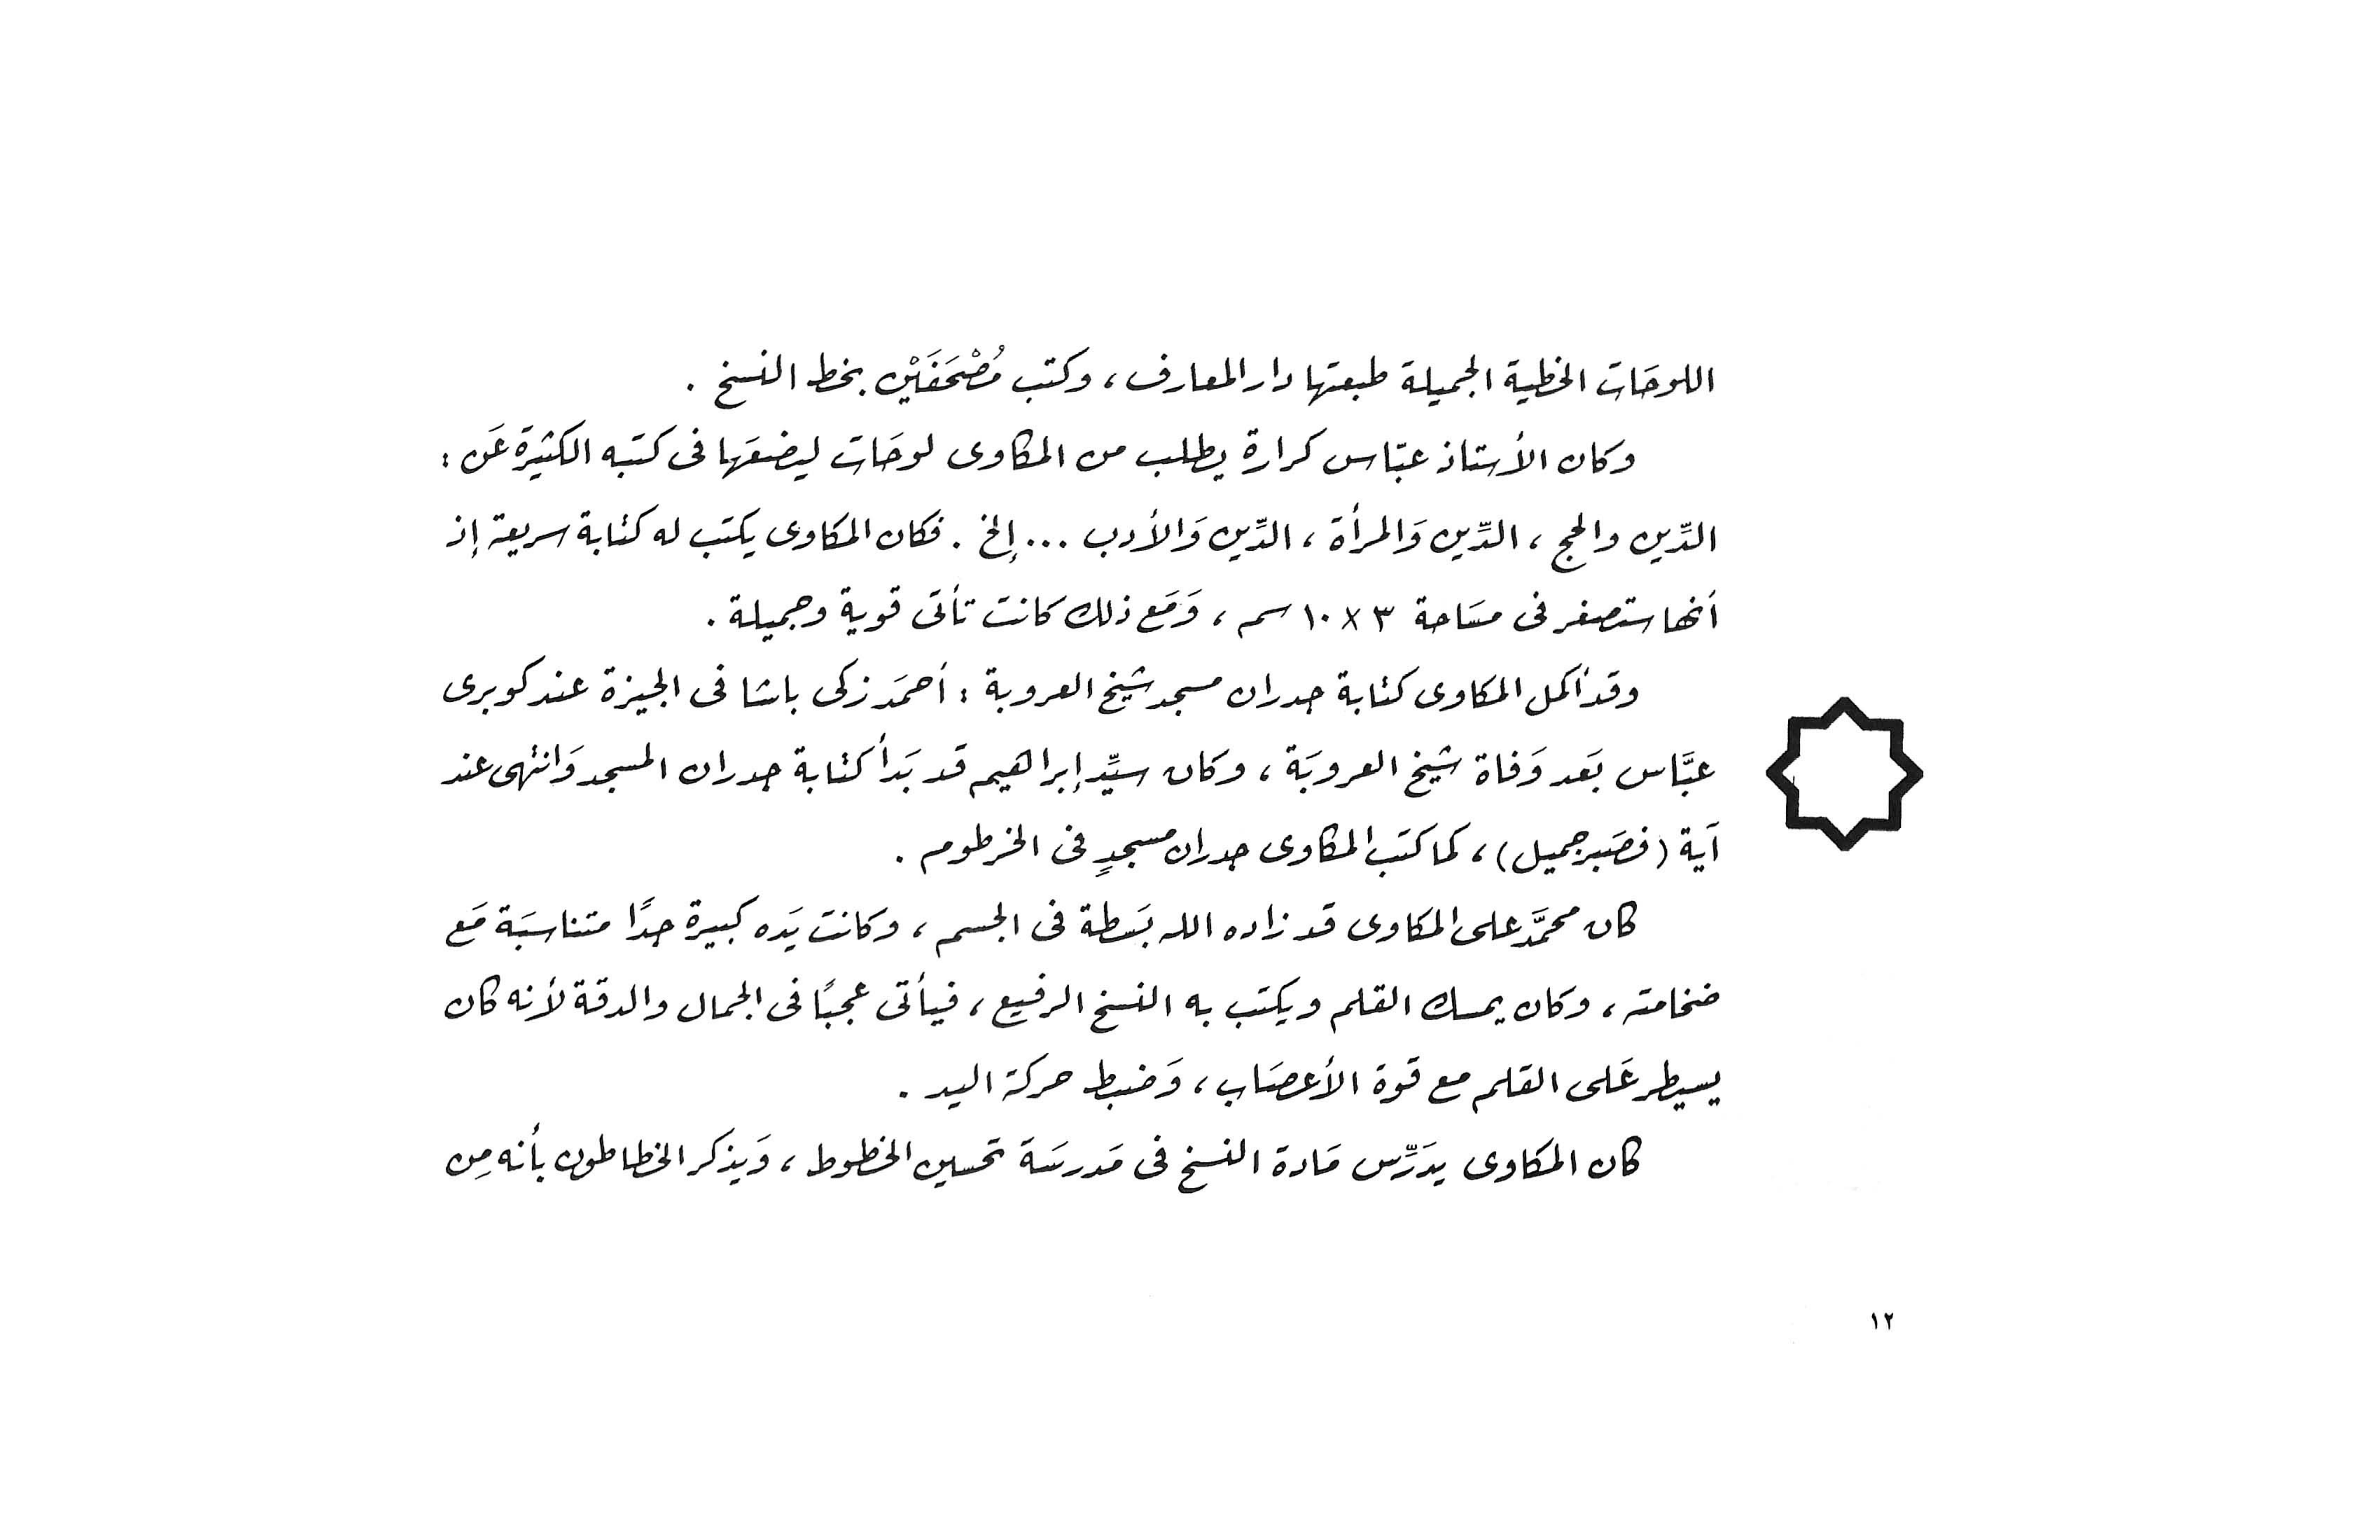 اللوحَات الخطية الجميلة طبعتها دار المعارف ، وكتب مُصْحَفَيْن بخط النسخ .
وكان الأستاذ عبّاس كرارة يطلب من المكاوى لوحَات ليضعَها فى كتبه الكثيرة عَن :
الدِّين والحج ، الدِّين وَالمرأة ، الدِّين وَالأدب ... إلخ . فكان المكاوى يكتب له كتابة سريعة إذ
أنها ستصغر فى مسَاحة ٣ × ١٠ سم ، وَمَع ذلك كانت تأتى قوية وجميلة .
وقد أكمل المكاوى كتابة جدران مسجد شيخ العروبة : أحمَد زكى باشا فى الجيزة عند كوبرى
عبَّاس بَعد وَفاة شيخ العروبَة ، وكان سيِّد إبراهيم قد بَدأ كتابة جدران المسجد وَانتهى عند
آية (فصَبر جميل) ، كما كتَب المكاوى جدران مسجدٍ فى الخرطوم .
كان محمَّد على المكاوى قد زاده الله بَسطة فى الجسم ، وكانت يَده كبيرة جدًا متناسبَة مَع
ضخامته ، وكان يمسك القلم ويكتب به النسخ الرفيع ، فيأتى عجبًا فى الجمال والدقة لأنه كان
يسيطر عَلى القلم مع قوة الأعصَاب ، وَضبط حركة اليد .
كان المكاوى يدَرِّس مَادة النسخ فى مَدرسَة تحسين الخطوط ، وَيذكر الخطاطون بأنه مِن
١٢